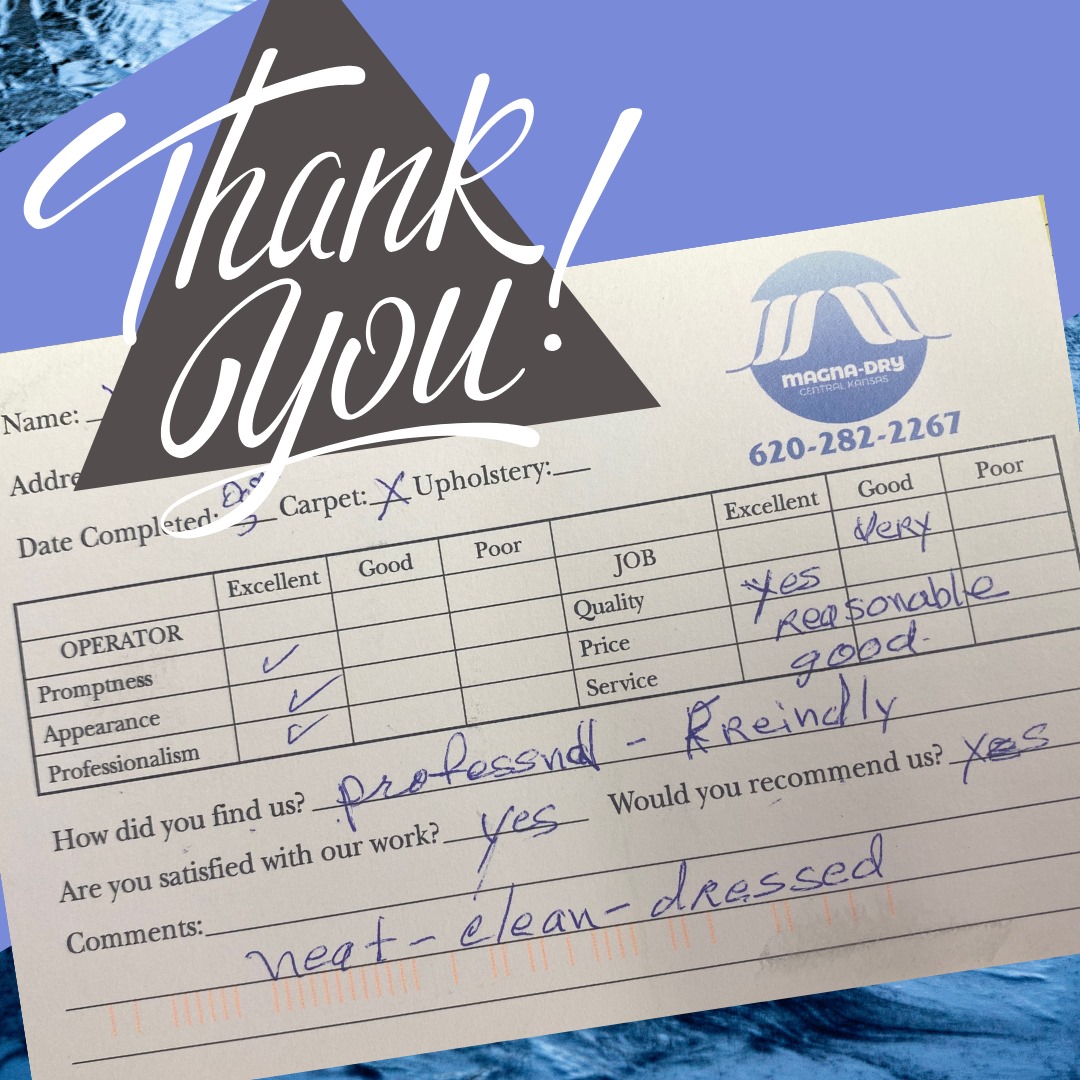 Thank
you!
MAGNA-DRY
CENTRAL KANSAS
620-282-2267
Name:
Addre
Date Completed: Carpet: X Upholstery:
Excellent Good Poor
OPERATOR
Promptness ✓
Appearance ✓
Professionalism ✓
Excellent Good Poor
JOB Very
Quality Yes
Price Reasonable
Service good.
How did you find us? professnal - FReindly
Are you satisfied with our work? yes Would you recommend us? yes
Comments:
neat - clean - dressed